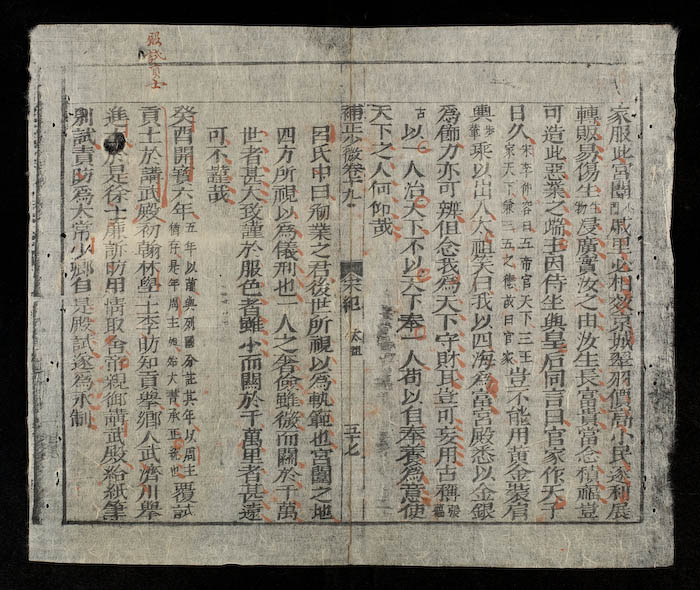 家服此宮闈戚里必相效京城翠羽價高小民逐利展
轉販易傷生浸廣實汝之由汝生長富貴當念積福豈
可造此惡業之端主因侍坐與皇后同言曰官家作天子
日久宋李仲容曰五帝官天下三王家天下兼三五之德故曰官家豈不能用黃金裝肩
輿乘以出入太祖笑曰我以四海為富宮殿悉以金銀
為飾力亦可辨但念我為天下守財耳豈可妄用古稱張蘊
古以一人治天下不以天下奉一人苟以自奉養為意使
天下之人何仰哉
補正少微卷十九 宋紀 太祖 五十七
呂氏中曰刱業之君後世所視以為軌範也宮闈之地
四方所視以為儀刑也一人之奢儉雖微而關於千萬
世者甚大致謹於服色者雖小而關於千萬里者甚遠
可不謹哉
癸酉開寶六年五年以前與列國分註其年以周主猶存是年周主殂始大書承正統也覆試
貢士於講武殿初翰林學士李昉知貢舉鄉人武濟川舉
進士於是徐士廉訴昉用情取舍帝親御講武殿給紙筆
別試責昉為太常少卿自是殿試遂為永制
殿試貢士